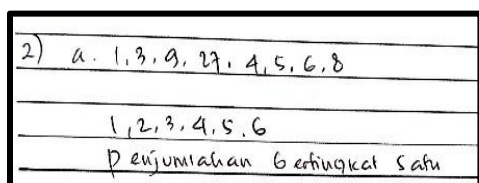 2) a. 1, 3, 9, 27, 4, 5, 6, 8
1, 2, 3, 4, 5, 6
Penjumlahan bertingkat satu